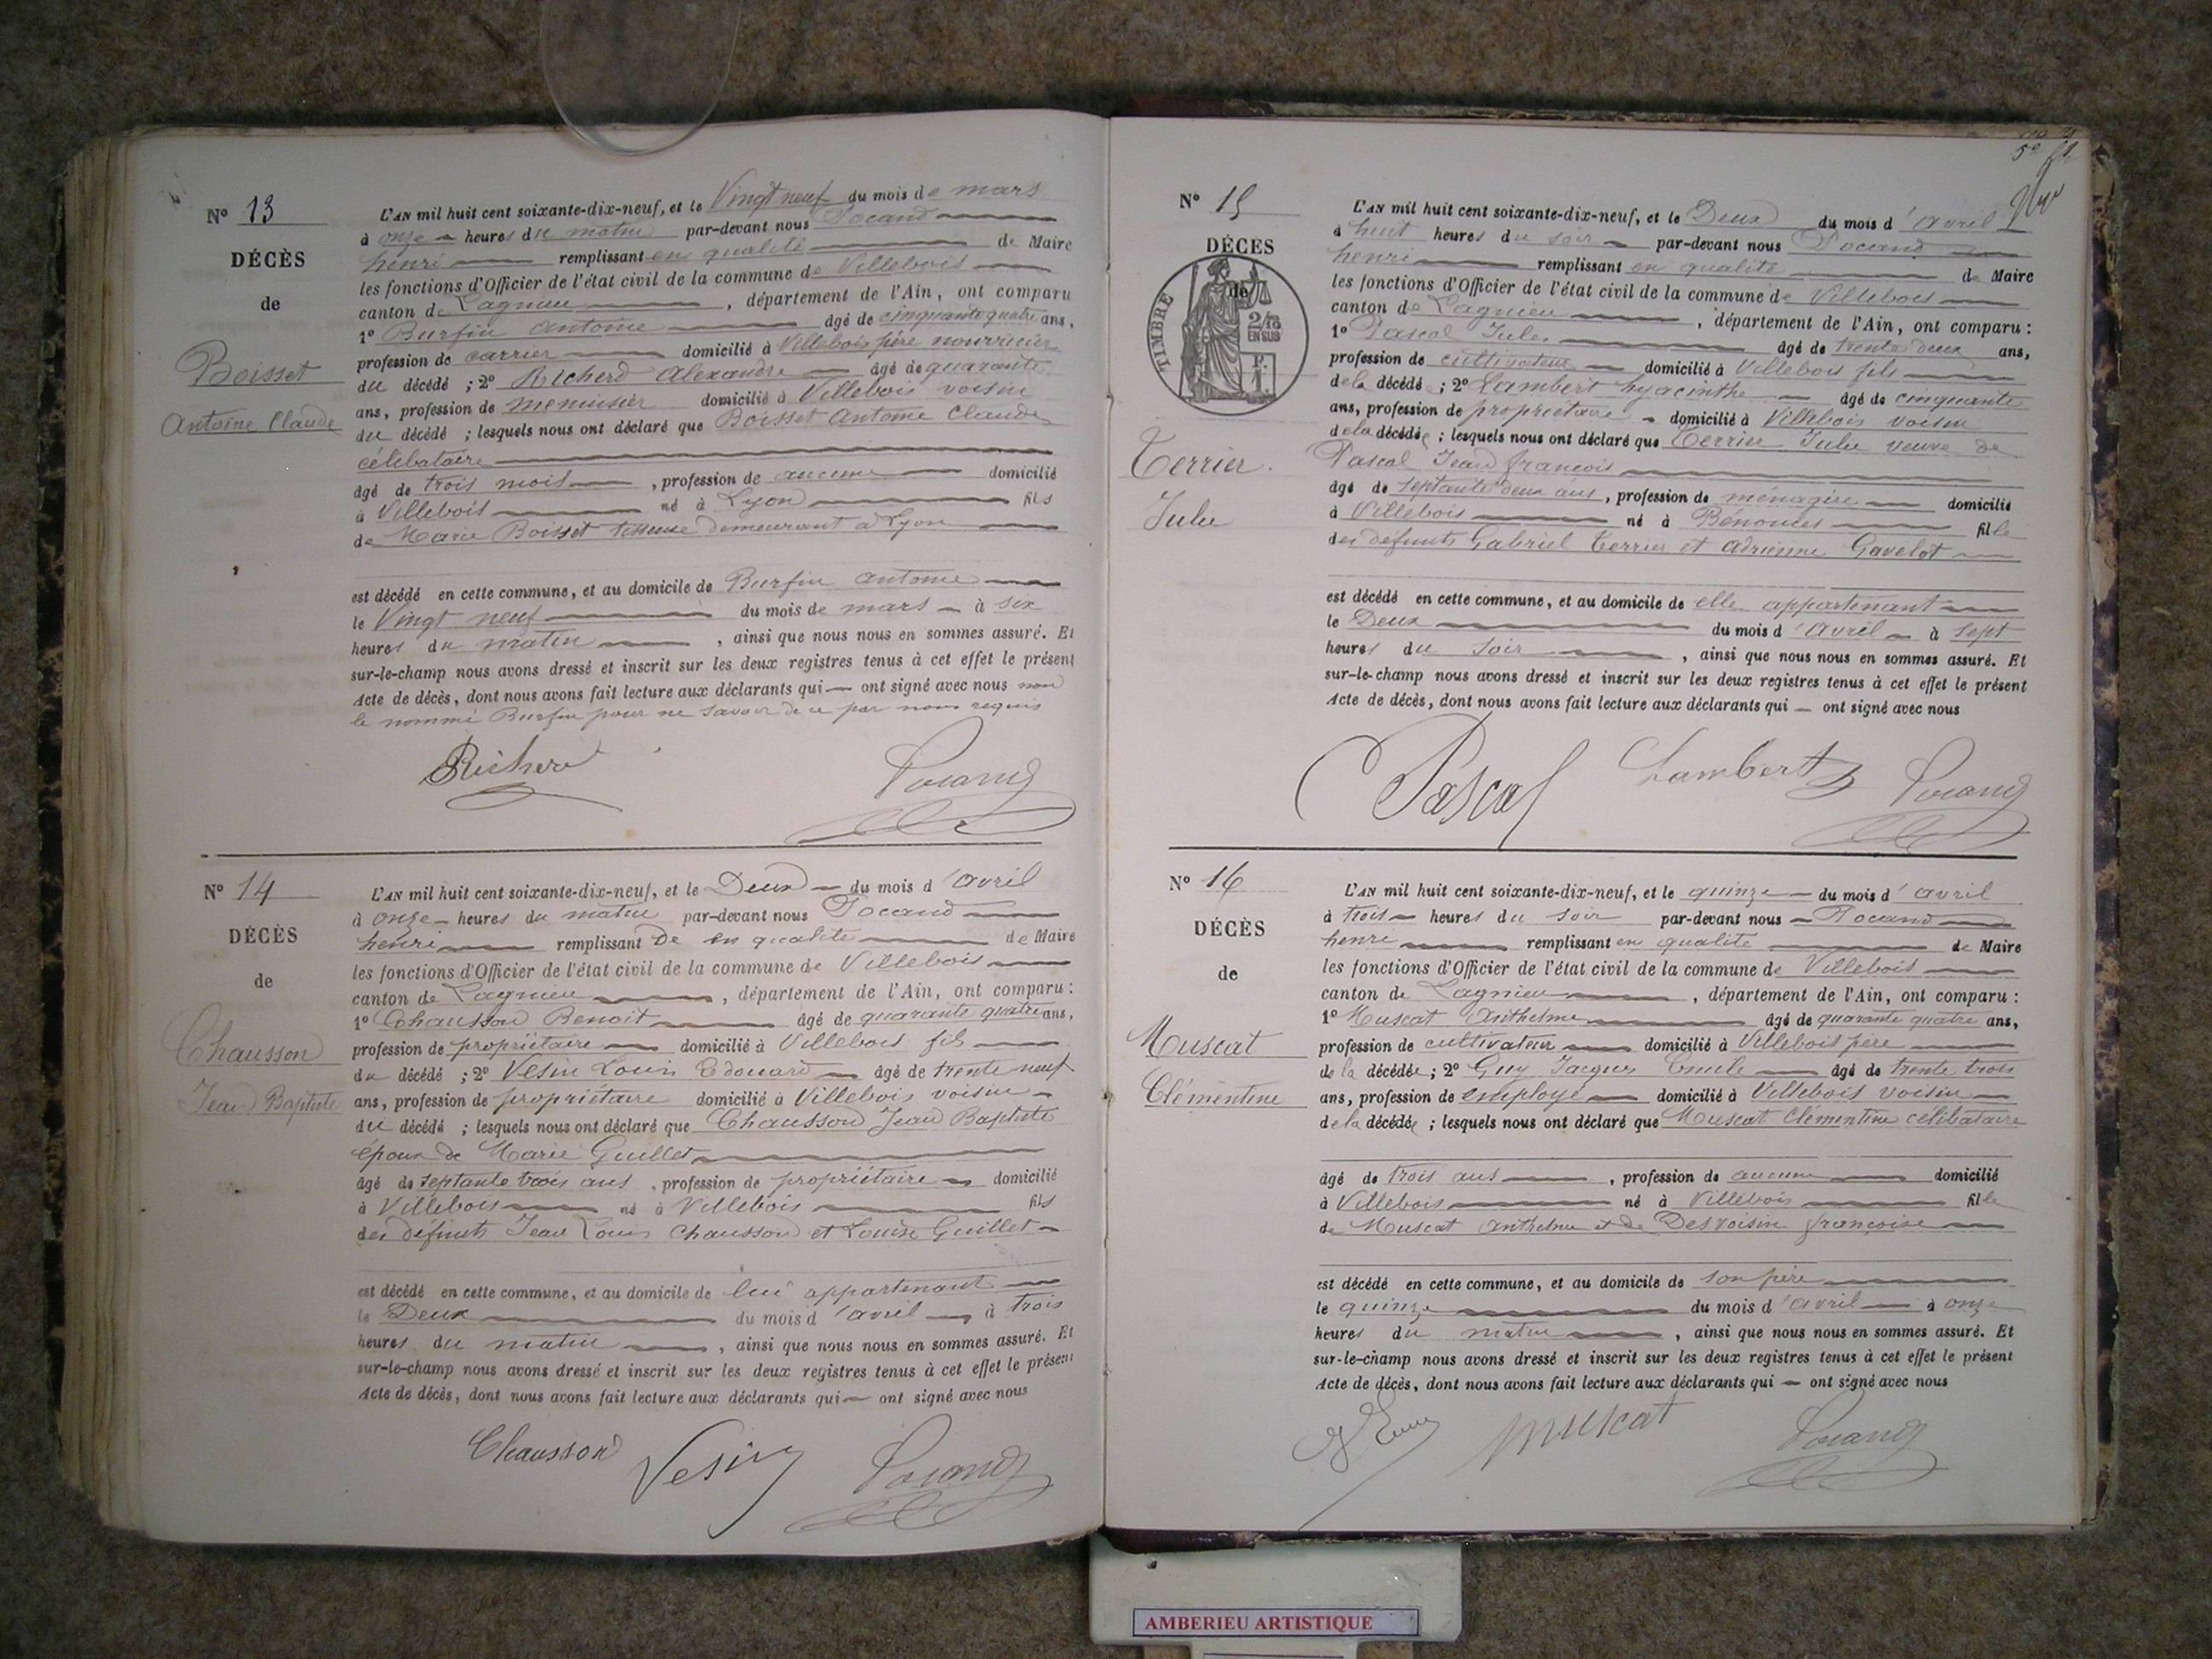 N° 13
DÉCÈS
de
Boisset
Antoine Claude
L'AN mil huit cent soixante-dix-neuf, et le Vingt neuf du mois de mars
à onze heures du matin par-devant nous Pocand
henri remplissant en qualité de Maire
les fonctions d'Officier de l'état civil de la commune de Villebois
canton de Lagnieu , département de l'Ain, ont comparu
1° Burfin antoine âgé de cinquante quatre ans,
profession de carrier domicilié à Villebois père nourricier
du décédé ; 2° Richerd Alexandre âgé de quarante
ans, profession de menuisier domicilié à Villebois voisin
du décédé ; lesquels nous ont déclaré que Boisset Antoine Claude
célibataire
âgé de trois mois , profession de aucune domicilié
à Villebois né à Lyon fils
de Marie Boisset tisseuse demeurant à Lyon
est décédé en cette commune, et au domicile de Burfin antoine
le Vingt neuf du mois de mars à six
heures du matin , ainsi que nous nous en sommes assuré. Et
sur-le-champ nous avons dressé et inscrit sur les deux registres tenus à cet effet le présent
Acte de décès, dont nous avons fait lecture aux déclarants qui ont signé avec nous non
le nommé Burfin pour ne savoir de ce par nous requis
Richerd Pocand
N° 14
DÉCÈS
de
Chausson
Jean Baptiste
L'AN mil huit cent soixante-dix-neuf, et le Deux du mois d'avril
à onze heures du matin par-devant nous Pocand
henri remplissant De en qualité de Maire
les fonctions d'Officier de l'état civil de la commune de Villebois
canton de Lagnieu , département de l'Ain, ont comparu :
1° Chausson Benoit âgé de quarante quatre ans,
profession de propriétaire domicilié à Villebois fils
du décédé ; 2° Vesin Louis Edouard âgé de trente neuf
ans, profession de propriétaire domicilié à Villebois voisin
du décédé ; lesquels nous ont déclaré que Chausson Jean Baptiste
époux de Marie Guillet
âgé de septante trois ans , profession de propriétaire domicilié
à Villebois né à Villebois fils
des défunts Jean Louis Chausson et Louise Guillet
est décédé en cette commune, et au domicile de lui appartenant
le Deux du mois d'avril à trois
heures du matin , ainsi que nous nous en sommes assuré. Et
sur-le-champ nous avons dressé et inscrit sur les deux registres tenus à cet effet le présent
Acte de décès, dont nous avons fait lecture aux déclarants qui ont signé avec nous
Chausson Vesin Pocand
N° 15
DÉCÈS
de
TIMBRE
2/10
EN SUS
Terrier
Julie
L'AN mil huit cent soixante-dix-neuf, et le Deux du mois d'avril
à huit heures du soir par-devant nous Pocand
henri remplissant en qualité de Maire
les fonctions d'Officier de l'état civil de la commune de Villebois
canton de Lagnieu , département de l'Ain, ont comparu :
1° Pascal Jules âgé de trente deux ans,
profession de cultivateur domicilié à Villebois fils
de la décédée ; 2° Lambert hyacinthe âgé de cinquante
ans, profession de propriétaire domicilié à Villebois voisin
de la décédée ; lesquels nous ont déclaré que Terrier Julie veuve de
Pascal Jean françois
âgé de septante deux ans, profession de ménagère domicilié
à Villebois né à Bénonces fille
des défunts Gabriel Terrier et Adrienne Gavelot
est décédé en cette commune, et au domicile de elle appartenant
le Deux du mois d'avril à sept
heures du soir , ainsi que nous nous en sommes assuré. Et
sur-le-champ nous avons dressé et inscrit sur les deux registres tenus à cet effet le présent
Acte de décès, dont nous avons fait lecture aux déclarants qui ont signé avec nous
Pascal Lambert Pocand
N° 16
DÉCÈS
de
Muscat
Clémentine
L'AN mil huit cent soixante-dix-neuf, et le quinze du mois d'avril
à trois heures du soir par-devant nous Pocand
henri remplissant en qualité de Maire
les fonctions d'Officier de l'état civil de la commune de Villebois
canton de Lagnieu , département de l'Ain, ont comparu :
1° Muscat Anthelme âgé de quarante quatre ans,
profession de cultivateur domicilié à Villebois père
de la décédée ; 2° Guy Jacques Emile âgé de trente trois
ans, profession de employé domicilié à Villebois voisin
de la décédée ; lesquels nous ont déclaré que Muscat Clémentine célibataire
âgé de trois ans , profession de aucune domicilié
à Villebois né à Villebois fille
de Muscat Anthelme et de Desvoisin françoise
est décédé en cette commune, et au domicile de son père
le quinze du mois d'avril à onze
heures du matin , ainsi que nous nous en sommes assuré. Et
sur-le-champ nous avons dressé et inscrit sur les deux registres tenus à cet effet le présent
Acte de décès, dont nous avons fait lecture aux déclarants qui ont signé avec nous
muscat Pocand
AMBERIEU ARTISTIQUE